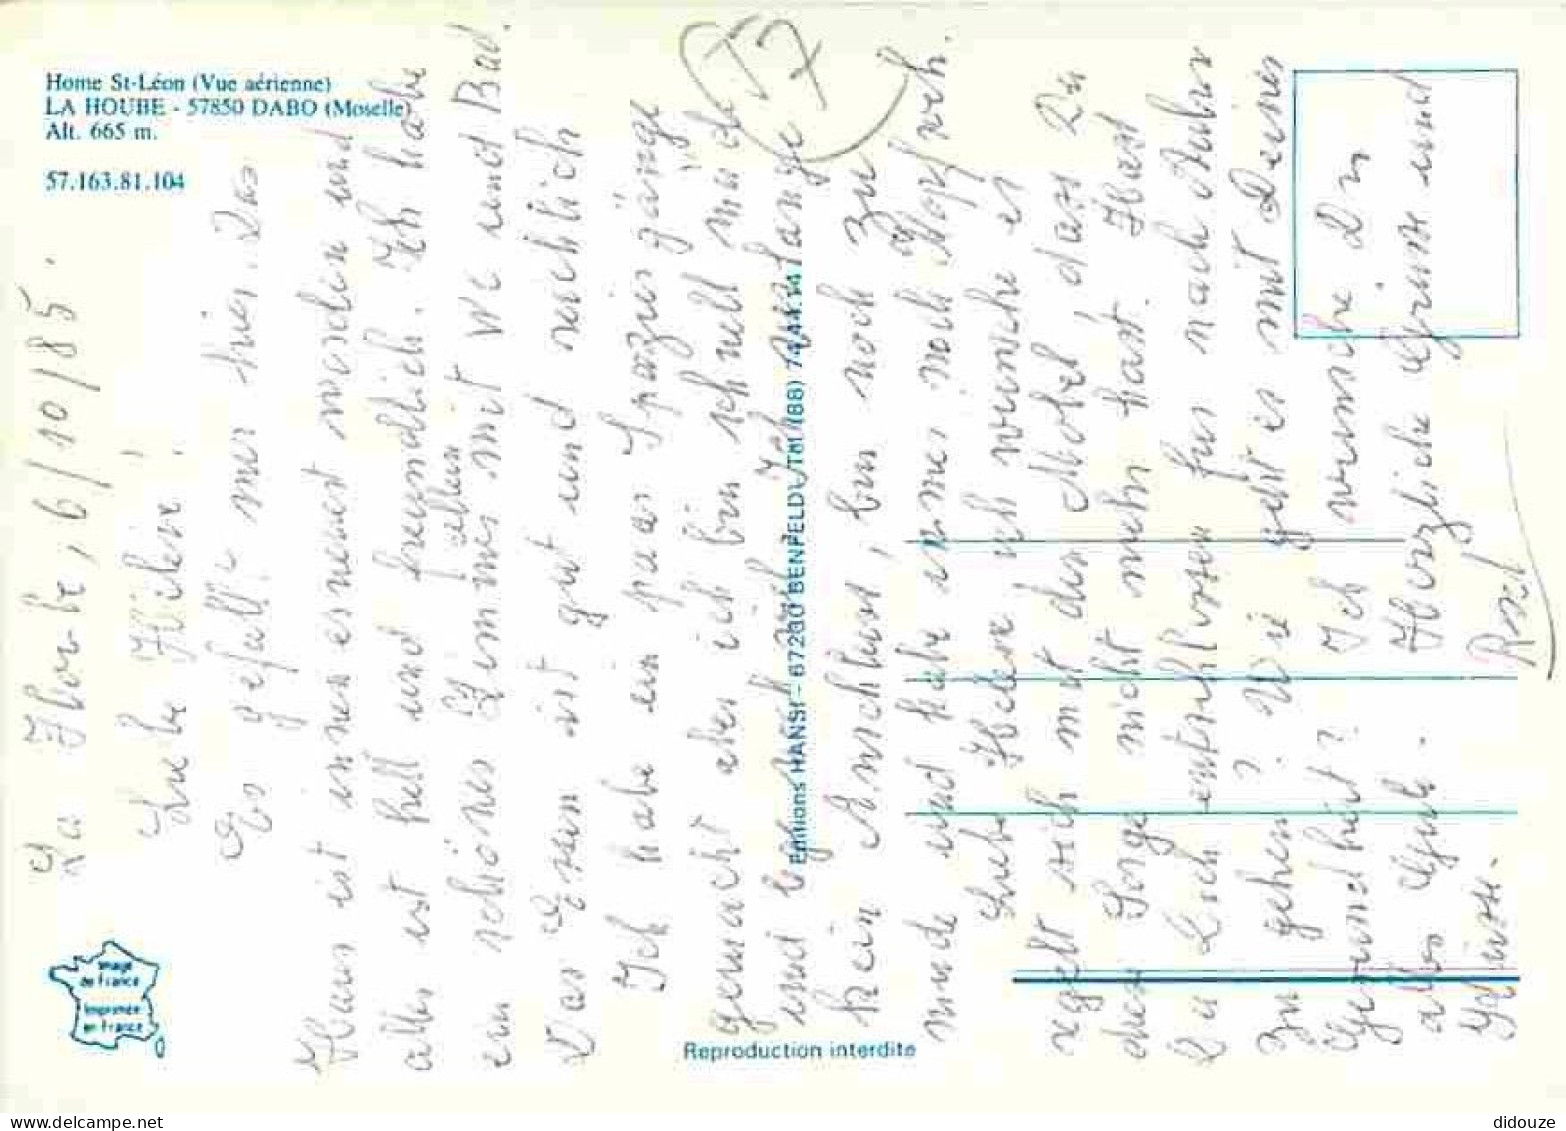 Home St-Léon (Vue aérienne)
LA HOUBE - 57850 DABO (Moselle)
Alt. 665 m.
57.163.81.104
T7
La Hoube, 6/10/85.
Liebe Hélène!
Es gefällt mir hier. Das
Haus ist innen erneuert worden und
alles ist hell und freundlich. Ich habe
ein schönes Zimmer mit WC und Bad.
Das Essen ist gut und reichlich
Ich habe ein paar Spaziergänge
gemacht aber ich bin schnell müde
und Ich lange
kein Anschluss, bin noch zu
müde und habe immer noch Kopfweh.
Liebe Hélène ich wünsche es
regelt sich mit den Möbel, dass Du
diese Sorge nicht mehr hast. Hast
Du Dich entschlossen für nach
zu gehen? Wie geht es mit Deiner
Gesundheit? Ich wünsche Dir
alles Gute. Herzliche Grüsse und
Küsse.
Editions HANSI - 67230 BENFELD Tél. (88) 74.44.14
Reproduction interdite
Image
de France
Imprimée
en France
didouze